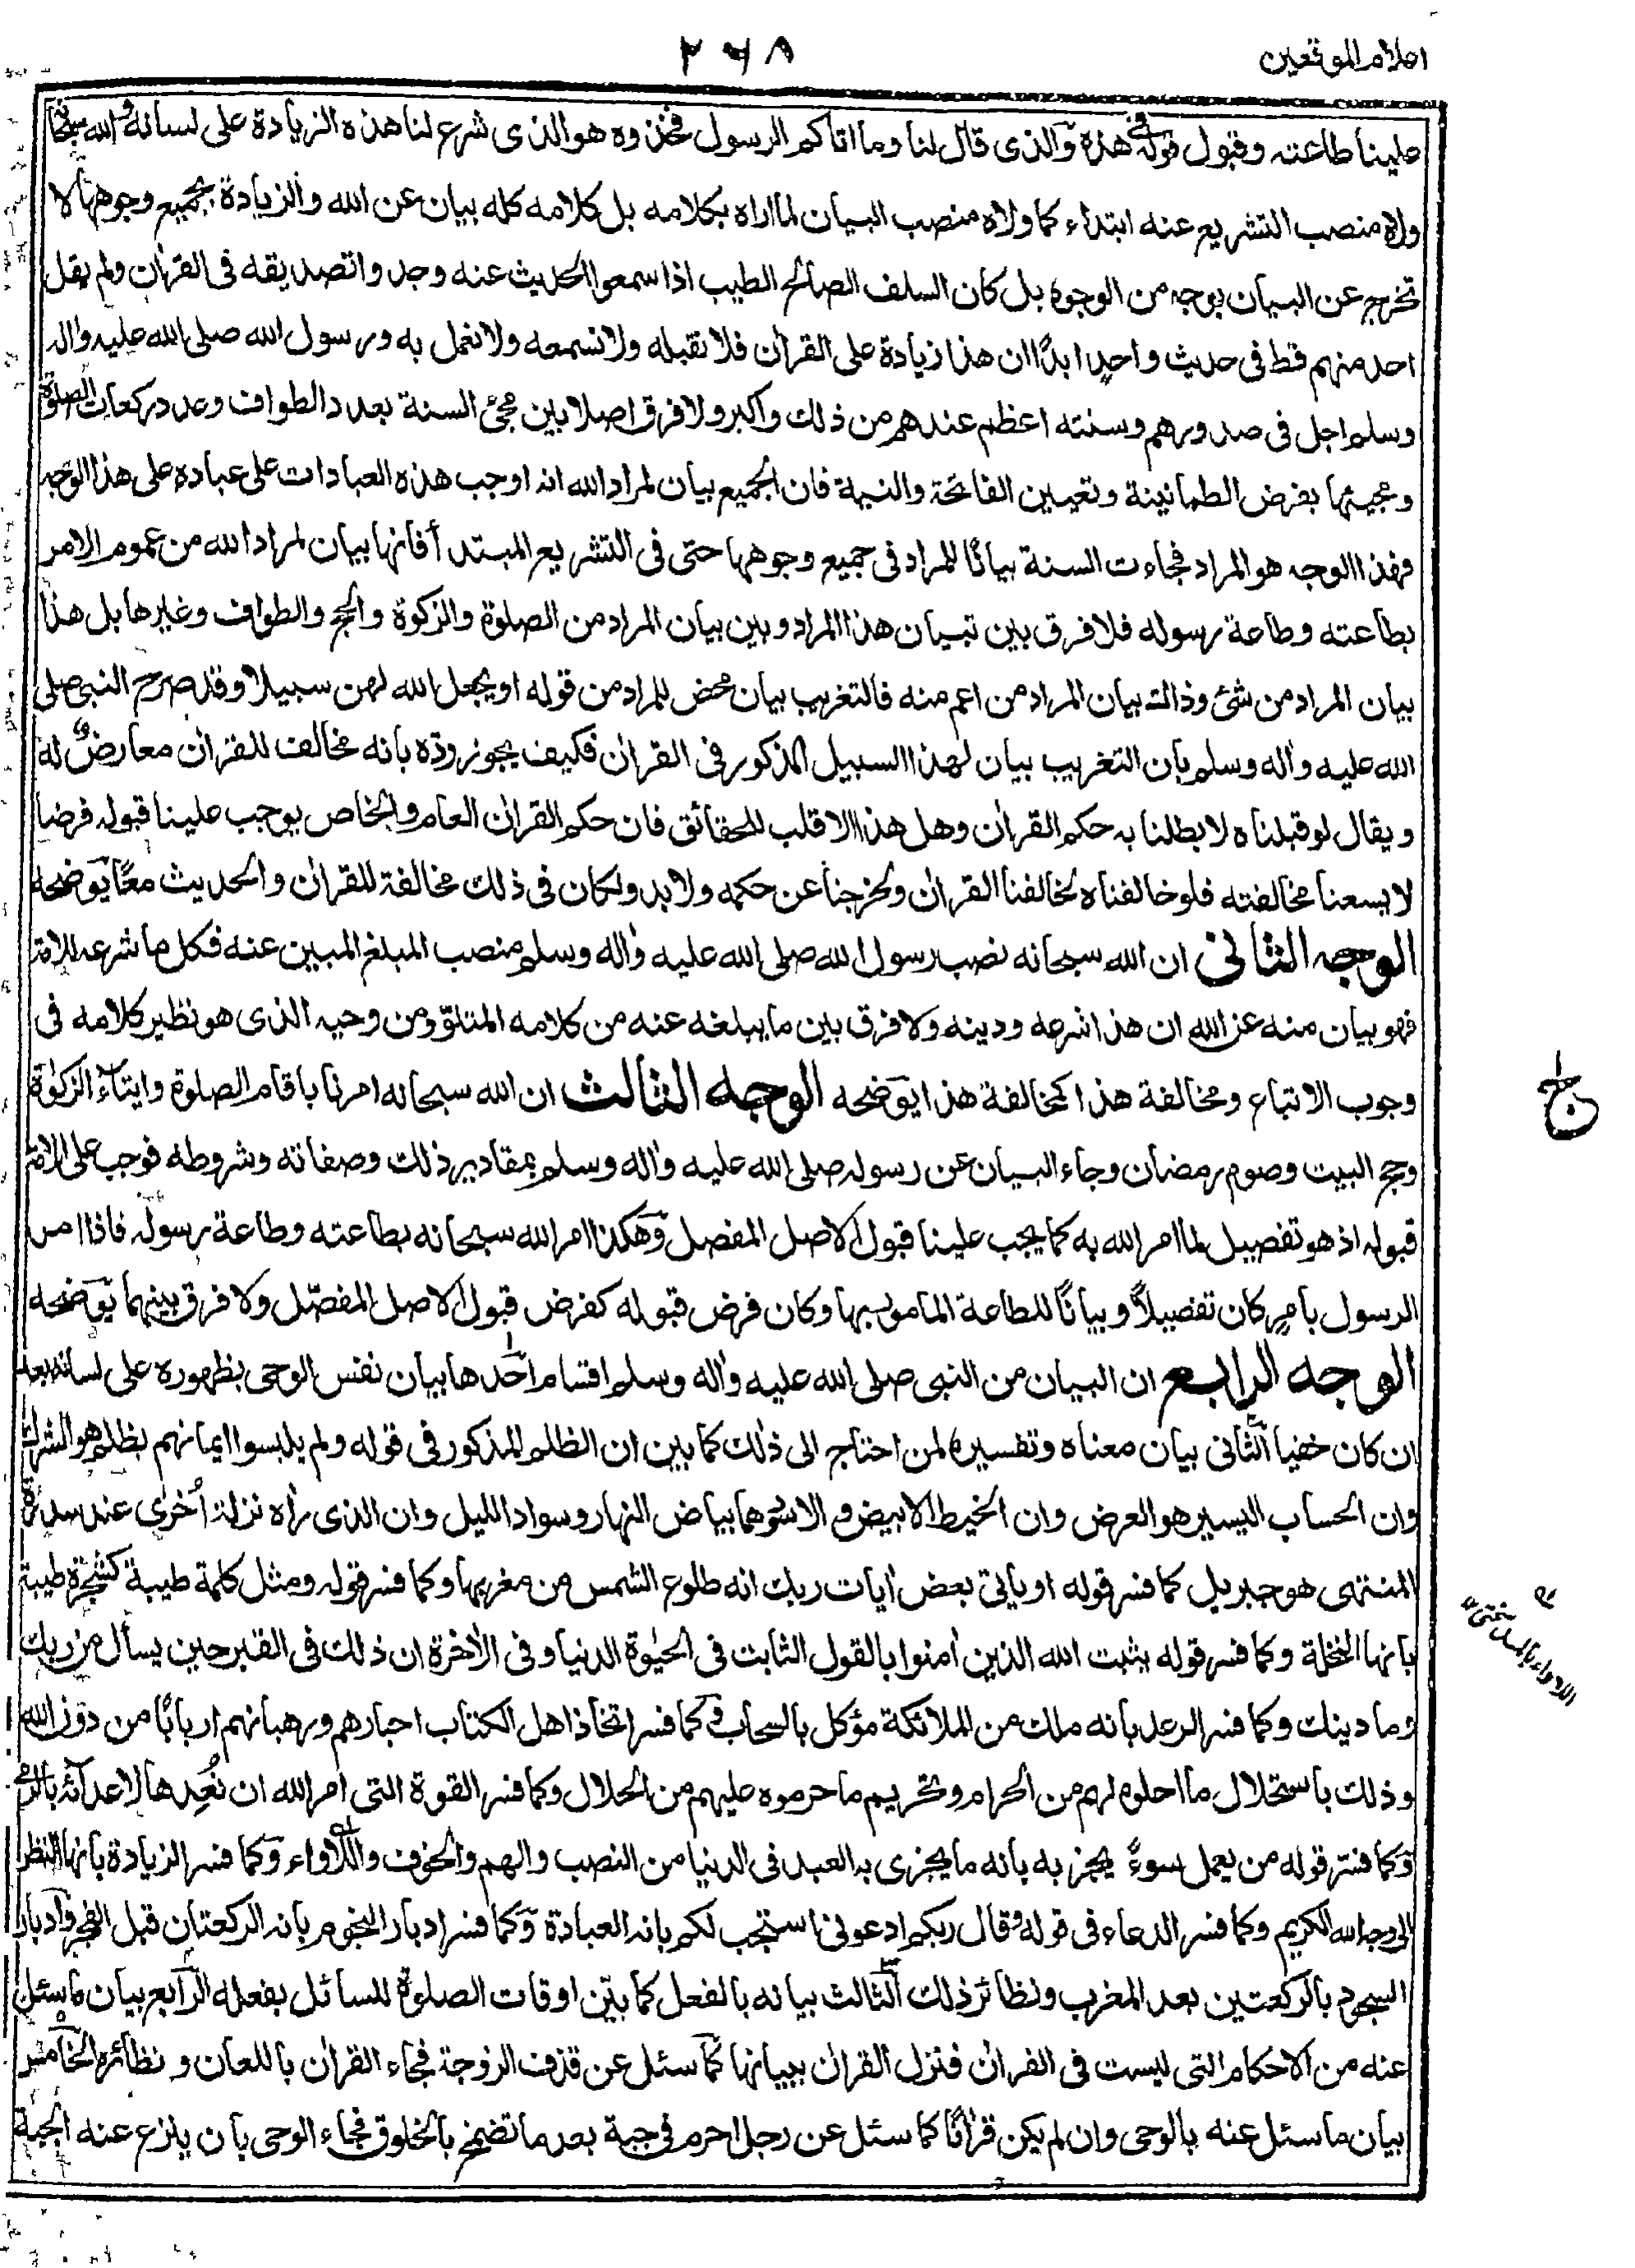 اعلام الموقعين
٢٦٨
علينا طاعته وقبول قوله فى هذه والذى قال لنا وما اتاكم الرسول فخذوه هو الذى شرع لنا هذه الزيادة على لسانه والله سبحانه
ولاه منصب التشريع عنه ابتداء كما ولاه منصب البيان لما اراه بكلامه بل كلامه كله بيان عن الله والزيادة بجميع وجوهها لا
تخرج عن البيان بوجه من الوجوه بل كان السلف الصالح الطيب اذا سمعوا الحديث عنه وجدوا تصديقه فى القرآن ولم يقل
احد منهم قط فى حديث واحد ابدًا ان هذا زيادة على القرآن فلا نقبله ولا نسمعه ولا نعمل به ورسول الله صلى الله عليه واله
وسلم اجل فى صدورهم وسنته اعظم عندهم من ذلك واكبر ولا فرق اصلا بين مجئ السنة بعدد الطواف وعدد ركعات الصلوة
ومجيئها بفرض الطمانينة وتعيين الفاتحة والنية فان الجميع بيان لمراد الله انه اوجب هذه العبادات على عباده على هذا الوجه
فهذا الوجه هو المراد فجاءت السنة بيانًا للمراد فى جميع وجوهها حتى فى التشريع المبتدأ فانها بيان لمراد الله من عموم الامر
بطاعته وطاعة رسوله فلا فرق بين تبيان هذا المراد وبين بيان المراد من الصلوة والزكوة والحج والطواف وغيرها بل هذا
بيان المراد من شئ وذاك بيان المراد من اعم منه فالتغريب بيان محض للمراد من قوله او يجعل الله لهن سبيلا وقد صرح النبى صلى
الله عليه واله وسلم بان التغريب بيان لهذا السبيل المذكور فى القرآن فكيف يجوز رده بانه مخالف للقرآن معارض له
ويقال لو قبلناه لابطلنا به حكم القرآن وهل هذا الا قلب للحقائق فان حكم القرآن العام والخاص يوجب علينا قبوله فرضا
لا يسعنا مخالفته فلو خالفناه لخالفنا القرآن ولخرجنا عن حكمه ولا بد ولكان فى ذلك مخالفة للقرآن والحديث معًا يوضحه
الوجه الثانى ان الله سبحانه نصب رسول الله صلى الله عليه واله وسلم منصب المبلغ المبين عنه فكل ما شرعه للامة
فهو بيان منه عن الله ان هذا شرعه ودينه ولا فرق بين ما يبلغه عنه من كلامه المتلوّ ومن وحيه الذى هو نظير كلامه فى
وجوب الاتباع ومخالفة هذا كمخالفة هذا يوضحه الوجه الثالث ان الله سبحانه امرنا باقام الصلوة وايتاء الزكوة
وحج البيت وصوم رمضان وجاء البيان عن رسوله صلى الله عليه واله وسلم بمقادير ذلك وصفاته وشروطه فوجب على الامة
قبوله اذ هو تفصيل لما امر الله به كما يجب علينا قبول الاصل المفصل وهكذا امر الله سبحانه بطاعته وطاعة رسوله فاذا امر
الرسول بامرٍ كان تفصيلاً وبيانًا للطاعة المامور بها وكان فرض قبوله كفرض قبول الاصل المفصّل ولا فرق بينهما يوضحه
الوجه الرابع ان البيان من النبى صلى الله عليه واله وسلم اقسام احدها بيان نفس الوحى بظهوره على لسانه بعد
ان كان خفيا الثانى بيان معناه وتفسيره لمن احتاج الى ذلك كما بين ان الظلم المذكور فى قوله ولم يلبسوا ايمانهم بظلم هو الشرك
وان الحساب اليسير هو العرض وان الخيط الابيض والاسود هما بياض النهار وسواد الليل وان الذى رآه نزلة اُخرى عند سدرة
المنتهى هو جبريل كما فسر قوله او ياتى بعض اٰيات ربك انه طلوع الشمس من مغربها وكما فسر قوله ومثل كلمة طيبة كشجرة طيبة
بانها النخلة وكما فسر قوله يثبت الله الذين اٰمنوا بالقول الثابت فى الحيوٰة الدنيا وفى الاٰخرة ان ذلك فى القبر حين يسأل من ربك
وما دينك وكما فسر الرعد بانه ملك من الملائكة مؤكل بالسحاب وكما فسر اتخاذ اهل الكتاب احبارهم ورهبانهم اربابًا من دون الله
وذلك باستحلال ما احلوه لهم من الحرام وتحريم ما حرموه عليهم من الحلال وكما فسر القوة التى امر الله ان نُعِدها لاعدائه بالرمى
وكما فسر قوله من يعمل سوءً يجز به بانه ما يجزى به العبد فى الدنيا من النصب والهم والخوف واللاواء وكما فسر الزيادة بانها النظر
الى وجه الله الكريم وكما فسر الدعاء فى قوله وقال ربكم ادعونى استجب لكم بانه العبادة وكما فسر ادبار النجوم بانه الركعتان قبل الفجر وادبار
السجود بالركعتين بعد المغرب ونظائر ذلك الثالث بيانه بالفعل كما بيّن اوقات الصلوة للسائل بفعله الرابع بيان ما سئل
عنه من الاحكام التى ليست فى القرآن فنزل القرآن ببيانها كما سئل عن قذف الزوجة فجاء القرآن باللعان ونظائره الخامس
بيان ما سئل عنه بالوحى وان لم يكن قرآنًا كما سئل عن رجل احرم فى جبة بعد ما تضمخ بالخلوق فجاء الوحى بان ينزع عنه الجبة
اللاواء بالمد سختى